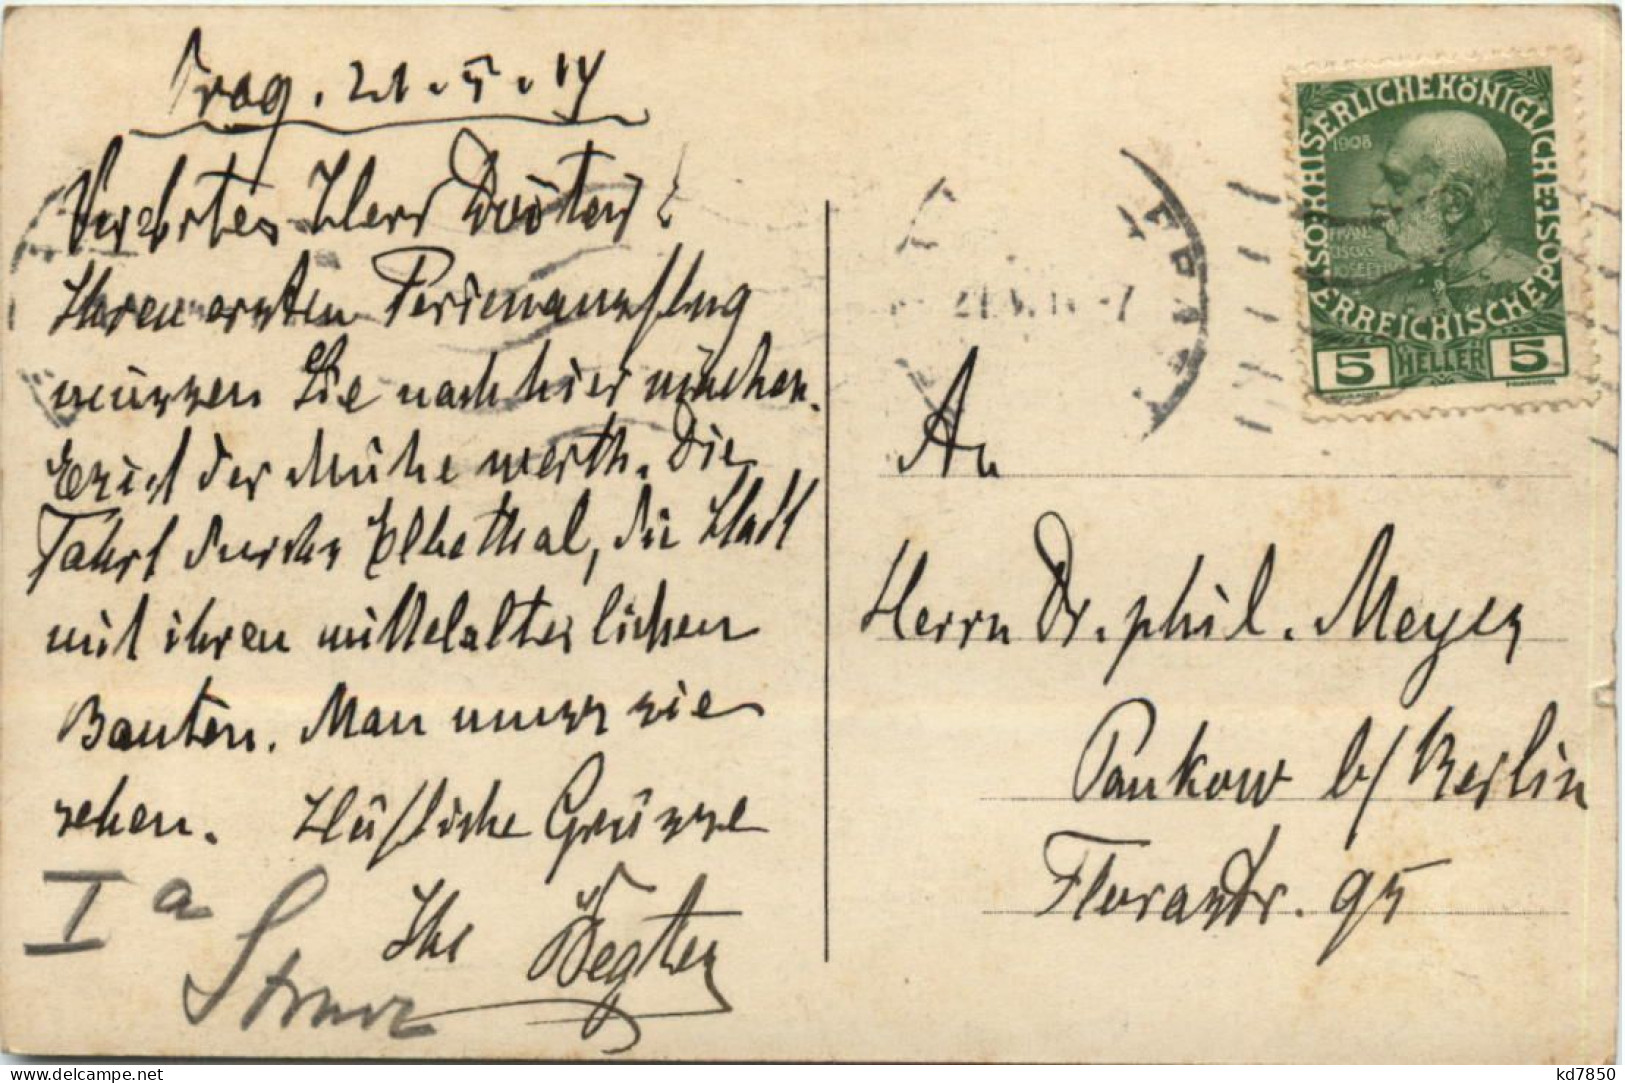 Prag. 21.5.14
Verehrter Herr
Ihren ersten Ferienausflug
müssen Sie nach hier machen.
Es ist der Mühe werth. Die
Fahrt durchs Elbethal, die Stadt
mit ihren mittelalterlichen
Bauten. Man muss sie
sehen. Höfliche Grüsse
Ihr
Ia
KAISERLICHEKÖNIGLICHE
ÖSTERREICHISCHEPOST
1908
FRANZ
JOSEPH
5 HELLER 5
An
Herrn Dr. phil. Meyer
Pankow b/ Berlin
Florastr. 95
kd7850